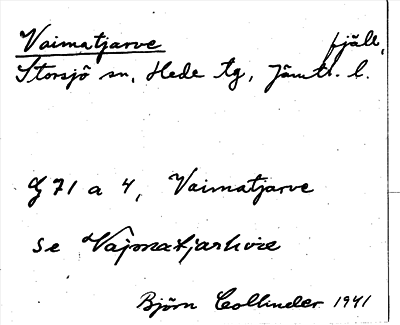 Vaimatjarve fjäll,
Storsjö sn, Hede tg, Jämtl. l.
G 71 a 4, Vaimatjarve
se
Björn Collinder 1941